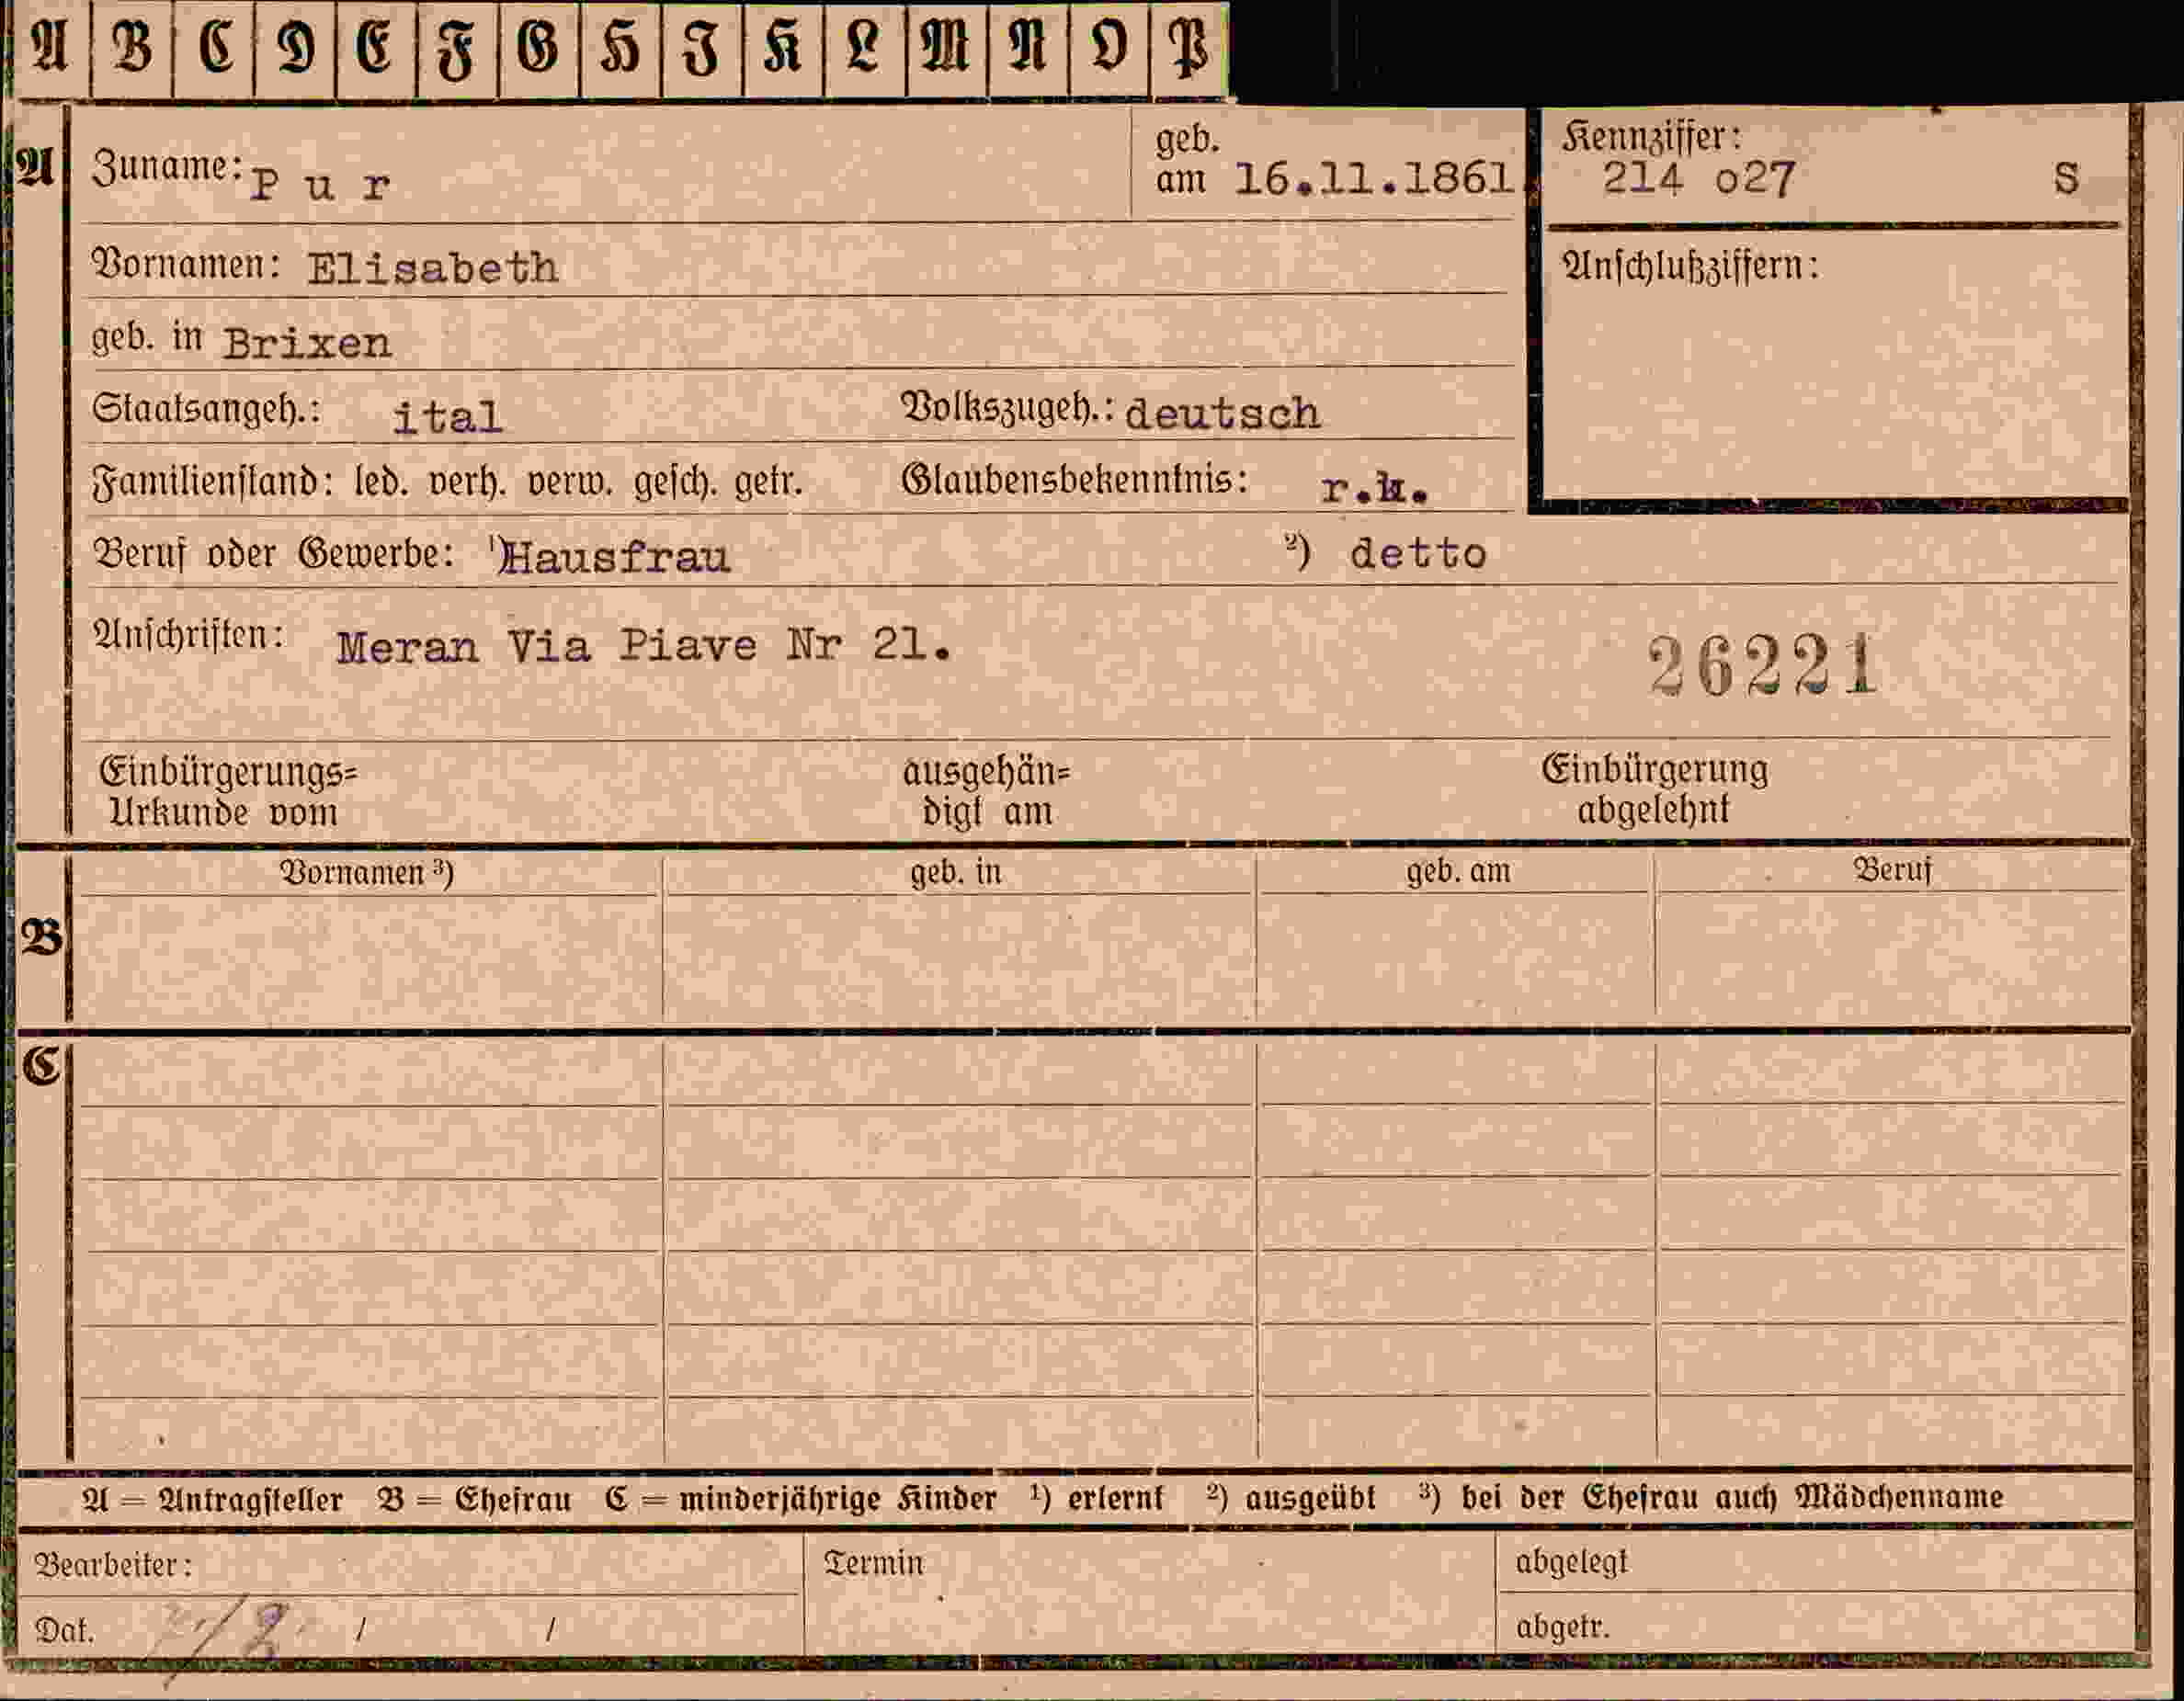 A B C D E F G H J K L M N O P
A Zuname: P u r geb. am 16.11.1861 Kennziffer: 214 o27 S
Vornamen: Elisabeth Anschlußziffern:
geb. in Brixen
Staatsangeh.: ital Volkszugeh.: deutsch
Familienstand: led. verh. verw. gesch. getr. Glaubensbekenntnis: r.k.
Beruf oder Gewerbe: ¹) Hausfrau ²) detto
Anschriften: Meran Via Piave Nr 21.
26221
Einbürgerungs= ausgehän= Einbürgerung
Urkunde vom digt am abgelehnt
Vornamen ³) geb. in geb. am Beruf
B
C
A = Antragsteller B = Ehefrau C = minderjährige Kinder ¹) erlernt ²) ausgeübt ³) bei der Ehefrau auch Mädchenname
Bearbeiter: Termin abgelegt
Dat. / / abgetr.